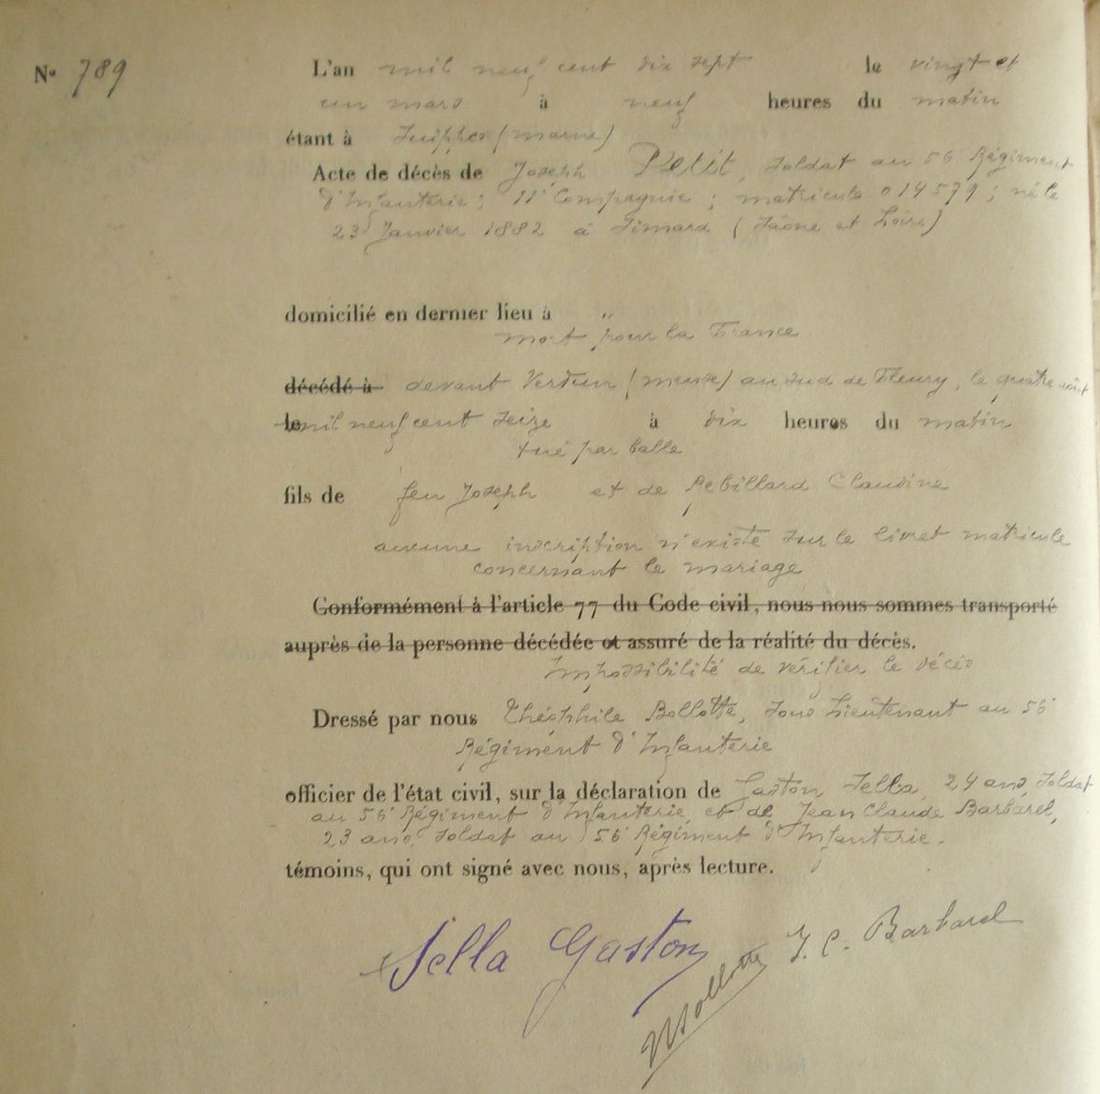 N° 789
L'an mil neuf cent dix sept le vingt et
un mars à neuf heures du matin
étant à Suippes (marne)
Acte de décès de Joseph Petit, soldat au 56e Régiment
d'Infanterie; 11e Compagnie; matricule 014579; né le
23 Janvier 1882 à Simard (Saône et Loire)
domicilié en dernier lieu à "
mort pour la France
décédé à devant Verdun (meuse) au sud de Fleury, le quatre août
le mil neuf cent seize à dix heures du matin
tué par balle
fils de feu Joseph et de Rebillard Claudine
aucune inscription n'existe sur le livret matricule
concernant le mariage
Conformément à l'article 77 du Code civil, nous nous sommes transporté
auprès de la personne décédée et assuré de la réalité du décès.
Impossibilité de vérifier le décès
Dressé par nous Théophile Bollotte, sous Lieutenant au 56e
Régiment d'Infanterie
officier de l'état civil, sur la déclaration de Gaston Sella, 24 ans, soldat
au 56e Régiment d'Infanterie et de Jean Claude Barbarel,
23 ans, soldat au 56e Régiment d'Infanterie.
témoins, qui ont signé avec nous, après lecture.
Sella Gaston J. C. Barbarel
Bollotte